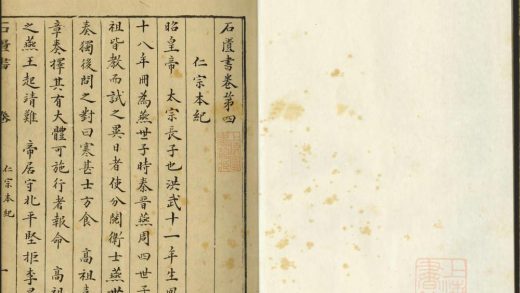 石匱書卷第四
仁宗本紀
昭皇帝 太宗長子也洪武十一年生
十八年冊為燕世子時秦晉燕周四世子
祖皆教而試之異日者使分閱衛士燕世
秦獨後問之對曰寒甚士方食 高祖
章奏擇其有大體可施行者報命 高祖
之燕王起靖難 帝居守北平堅拒李
石匱書 卷 仁宗本紀 一